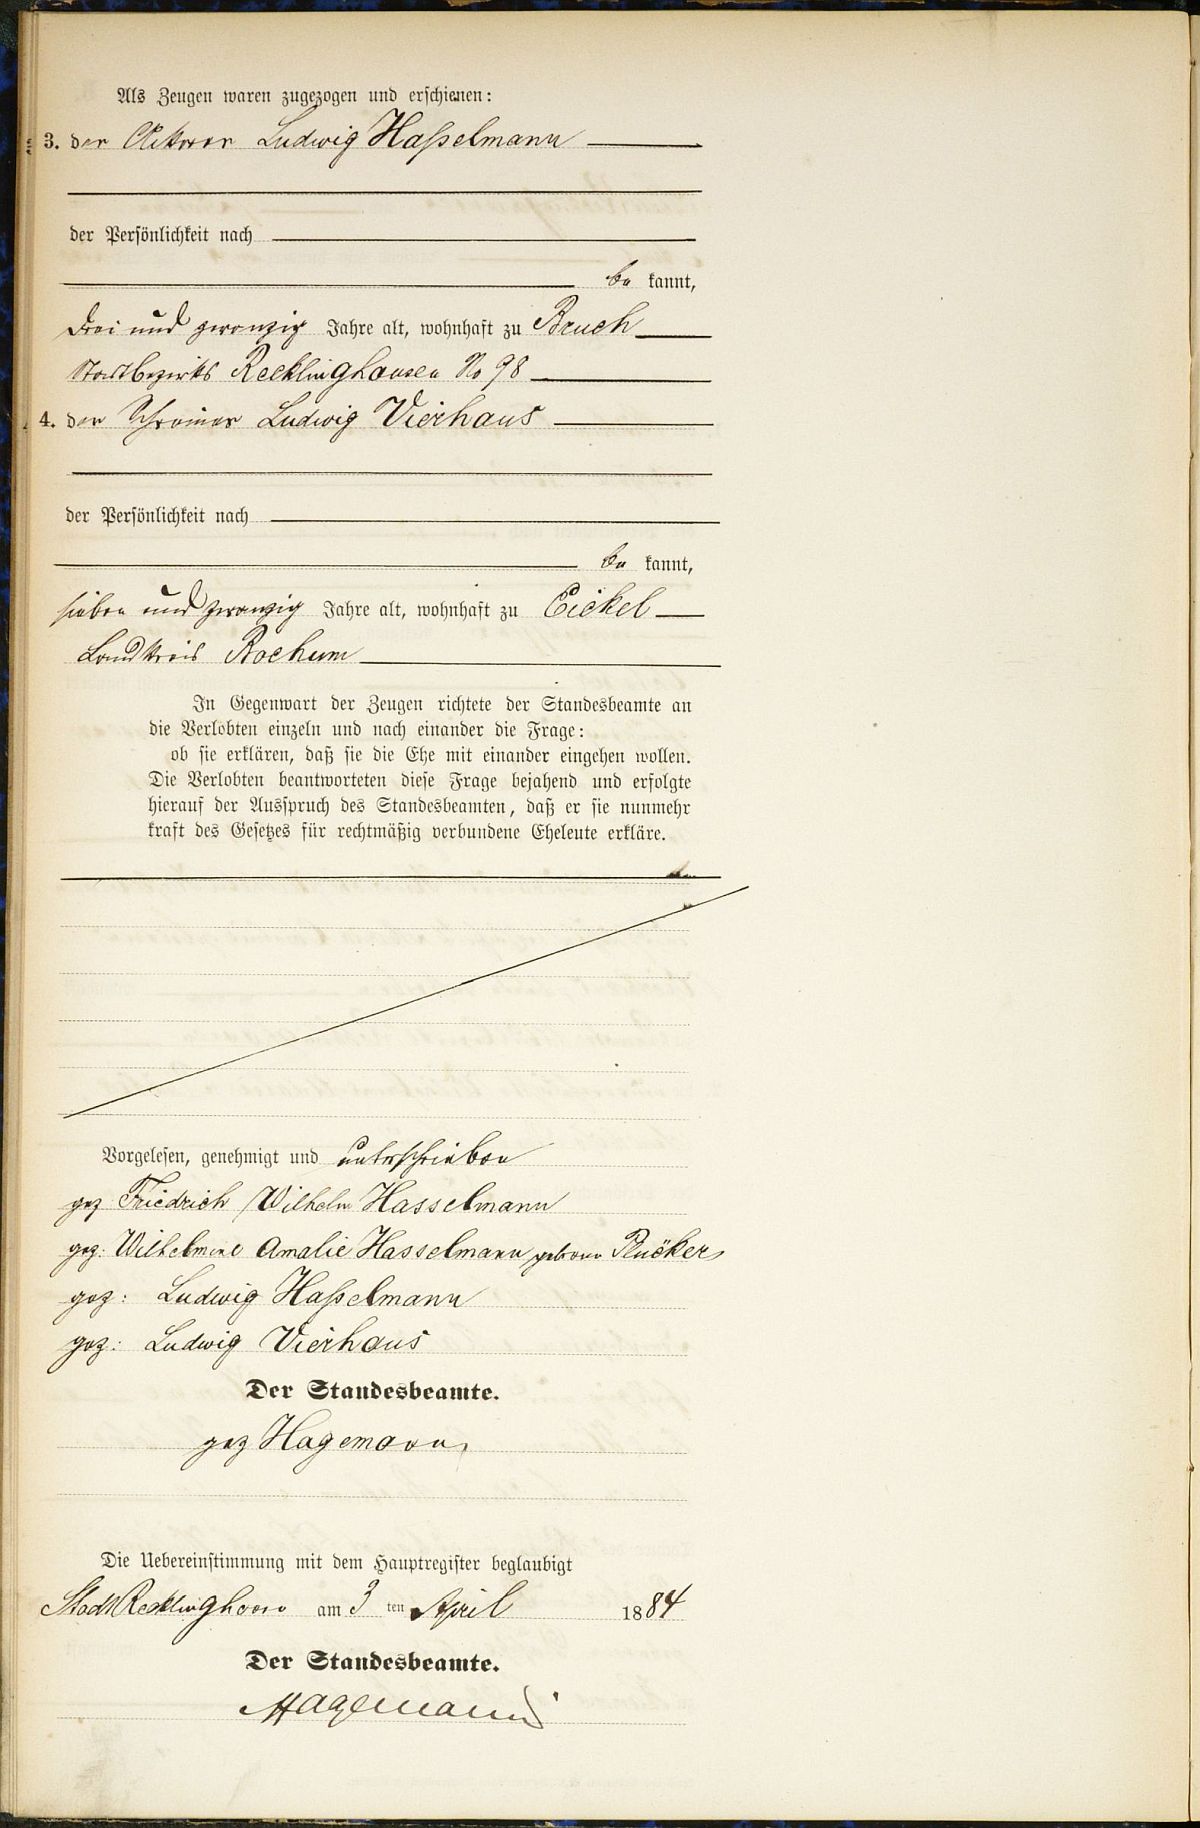 Als Zeugen waren zugezogen und erschienen:
3. der Ludwig Haßelmann
der Persönlichkeit nach
be kannt,
drei und zwanzig Jahre alt, wohnhaft zu Bruch
Stadtbezirks Recklinghausen No 98
4. der Schreiner Ludwig Vierhaus
der Persönlichkeit nach
be kannt,
sieben und zwanzig Jahre alt, wohnhaft zu Eickel
Landkreis Bochum
In Gegenwart der Zeugen richtete der Standesbeamte an
die Verlobten einzeln und nach einander die Frage:
ob sie erklären, daß sie die Ehe mit einander eingehen wollen.
Die Verlobten beantworteten diese Frage bejahend und erfolgte
hierauf der Ausspruch des Standesbeamten, daß er sie nunmehr
kraft des Gesetzes für rechtmäßig verbundene Eheleute erkläre.
Vorgelesen, genehmigt und unterschrieben
gez Friedrich Wilhelm Hasselmann
gez: Wilhelmine Amalie Hasselmann geborne
gez: Ludwig Haßelmann
gez: Ludwig Vierhaus
Der Standesbeamte.
gez Hagemann
Die Uebereinstimmung mit dem Hauptregister beglaubigt
Stadt Recklinghausen am 3 ten April 1884
Der Standesbeamte.
Hagemann